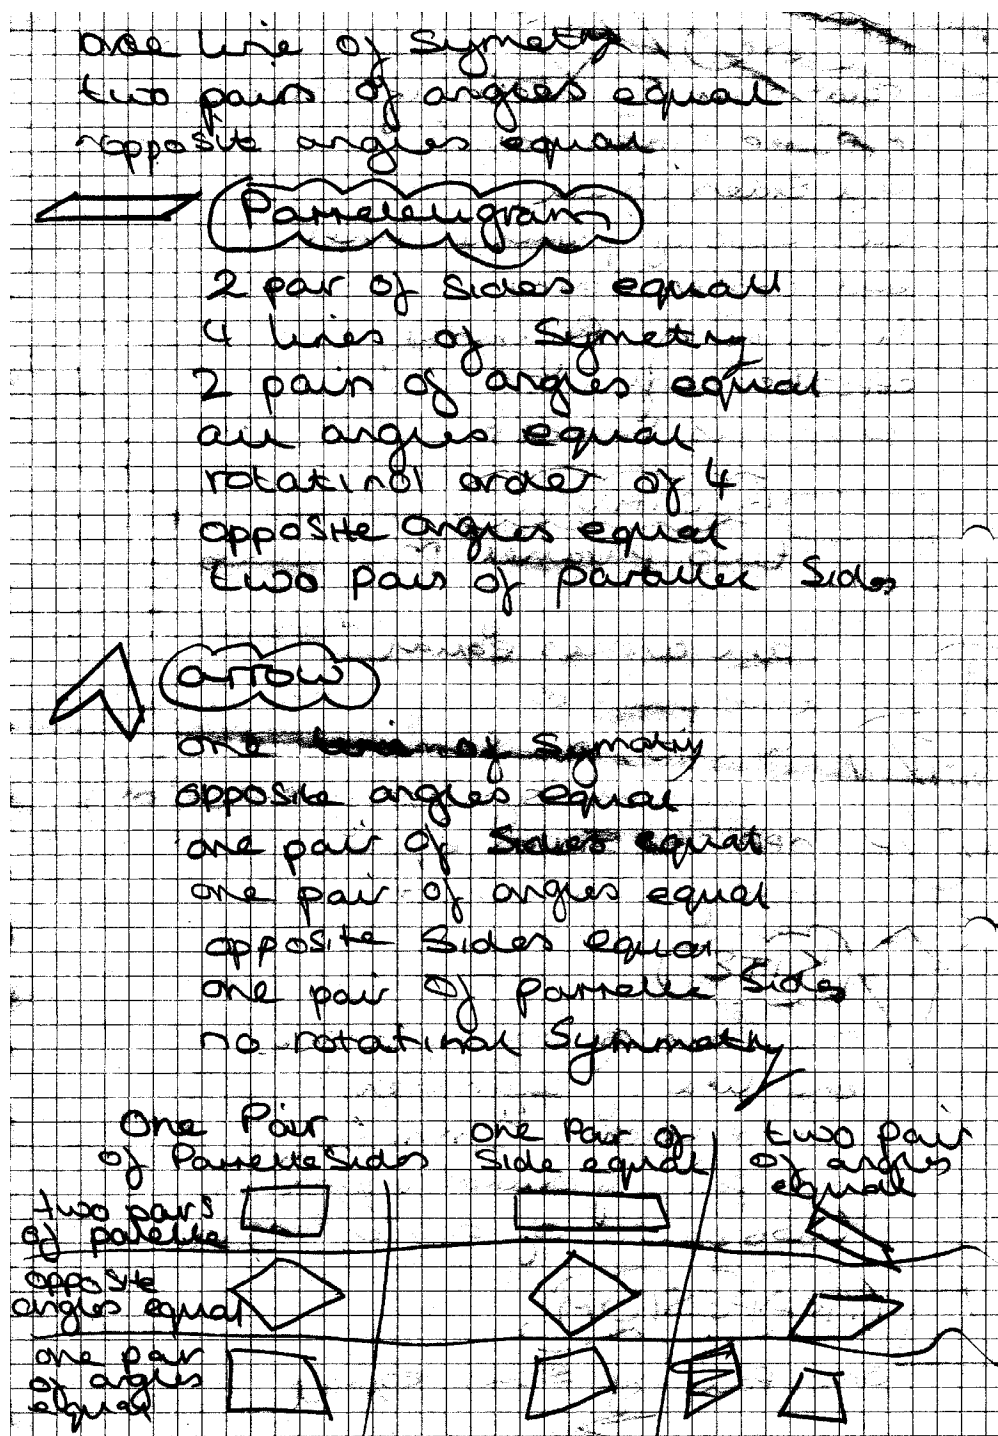 one line of Symetry
two pairs of angles equal
opposite angles equal
Parrelelugram
2 pair of sides equall
4 lines of Symetry
2 pair of angles equal
all angles equal
rotatinol order of 4
opposite angles equal
two pairs of parallel Sides
arrow
one line of Symetry
opposite angles equal
one pair of Sides equal
one pair of angles equal
opposite Sides equal
one pair of parrelle Sides
no rotatinal Symmetry
One Pair of Parrelle Sides
one Pair of Side equal
two pair of angles equal
two pairs of parelle
opposite angles equal
one pair of angles equal